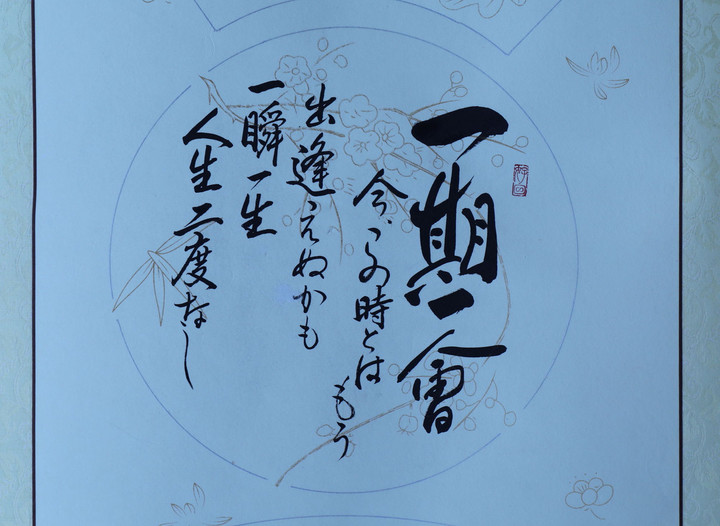 一期一會
今、この時とは もう
出逢えぬかも
一瞬一生
人生二度なし